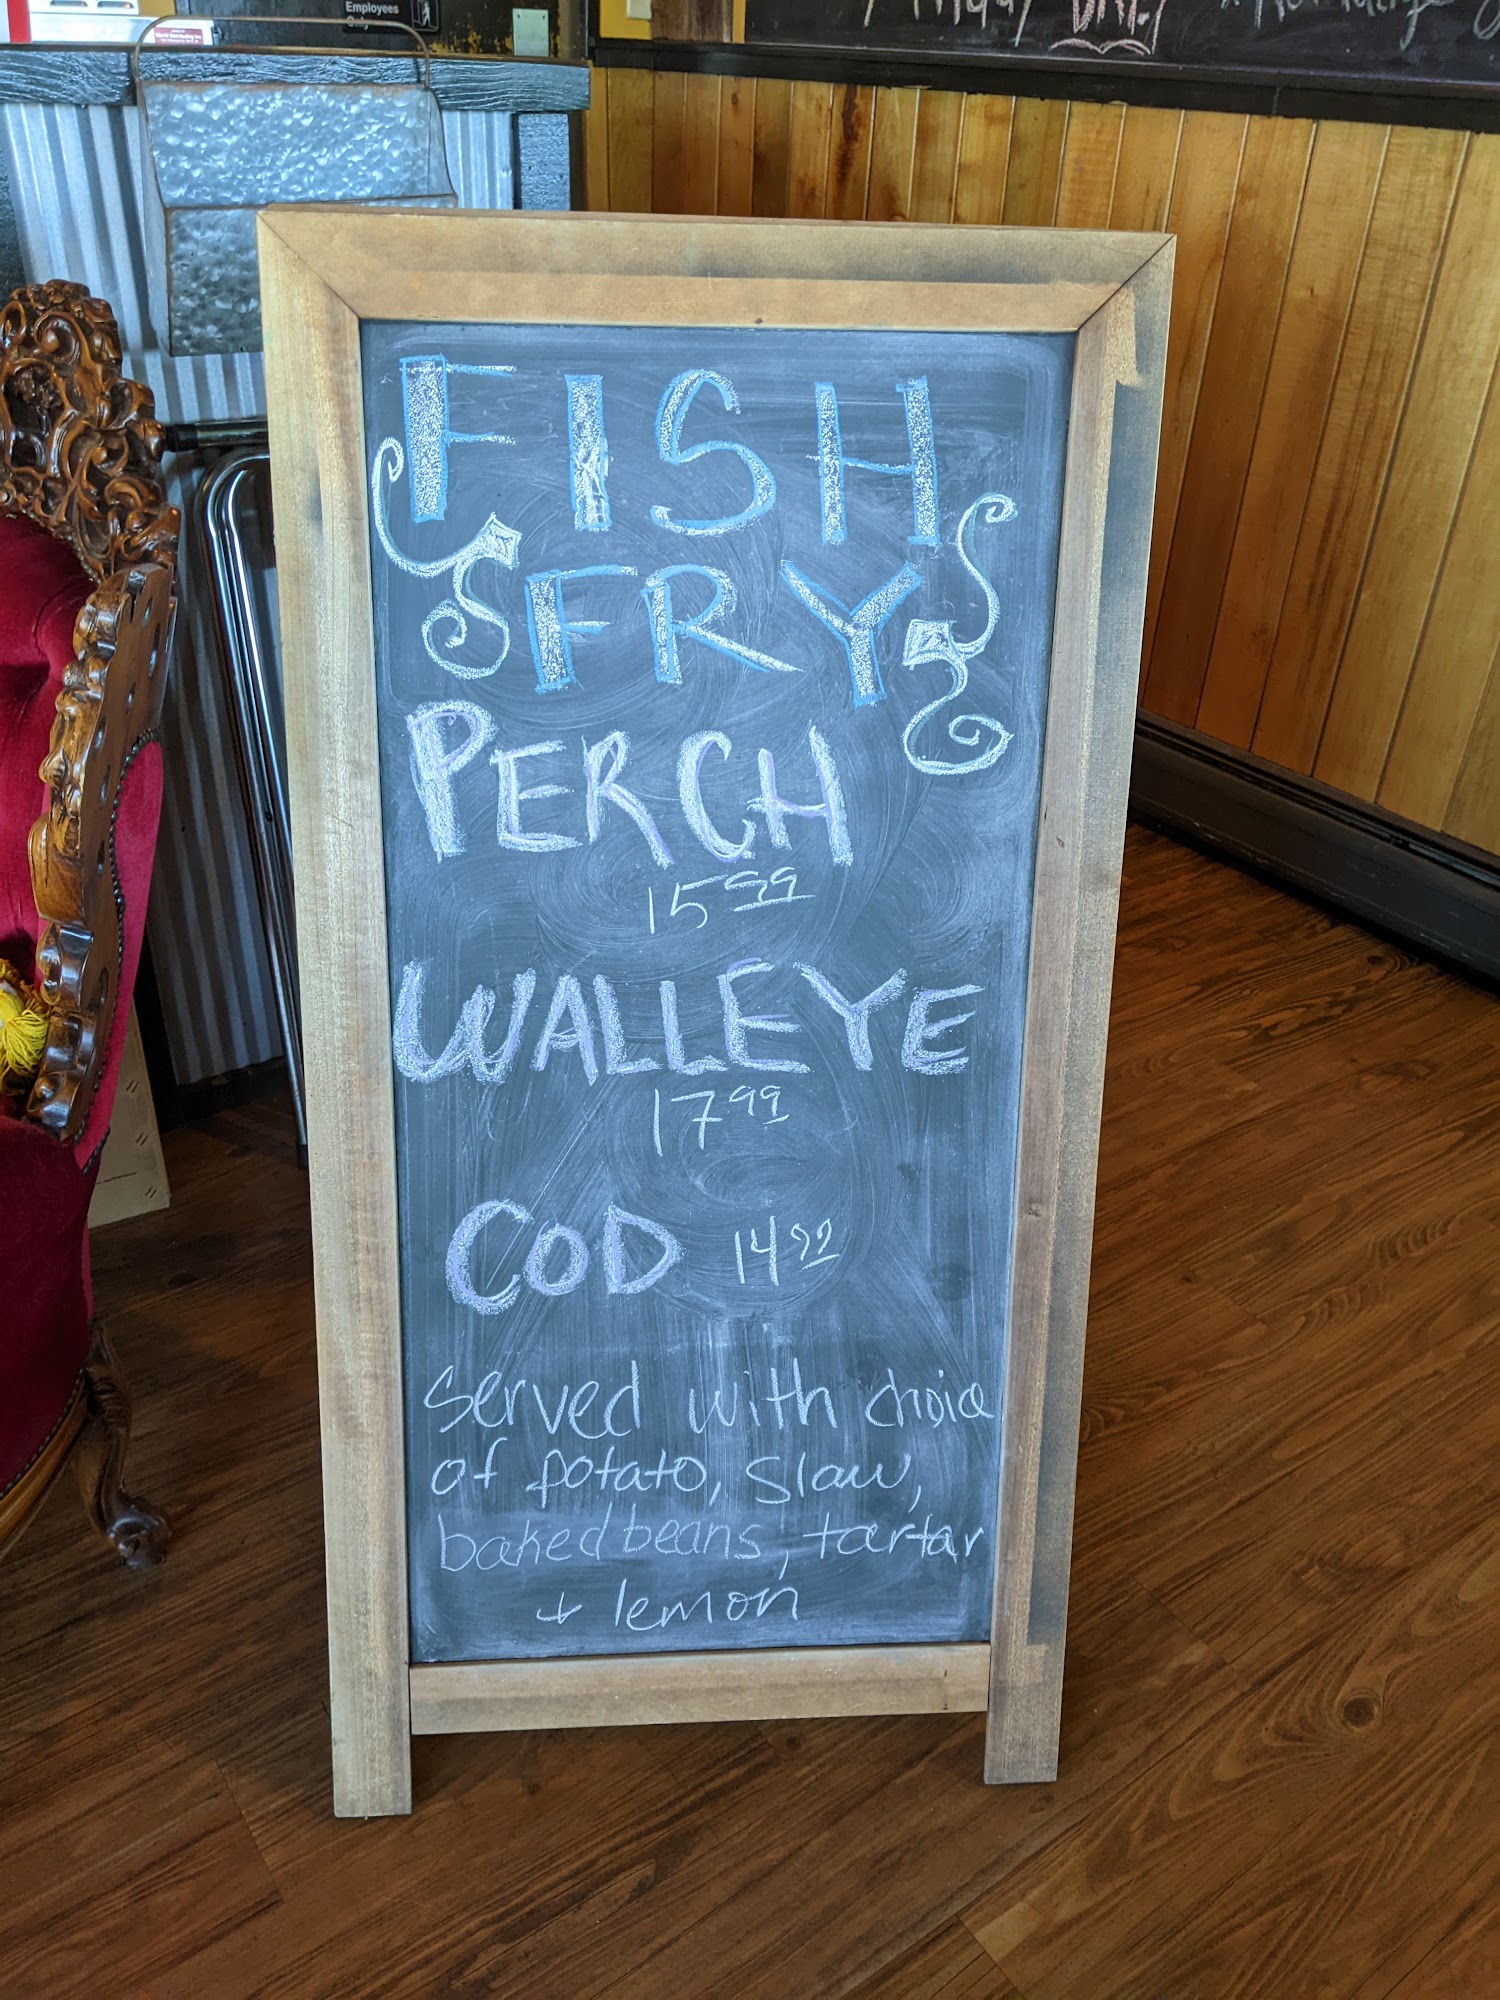 Employees
Only
Friday
FISH
FRY
PERCH
15 99
WALLEYE
17 99
COD 14 99
served with choice
of potato, slaw,
baked beans, tartar
+ lemon